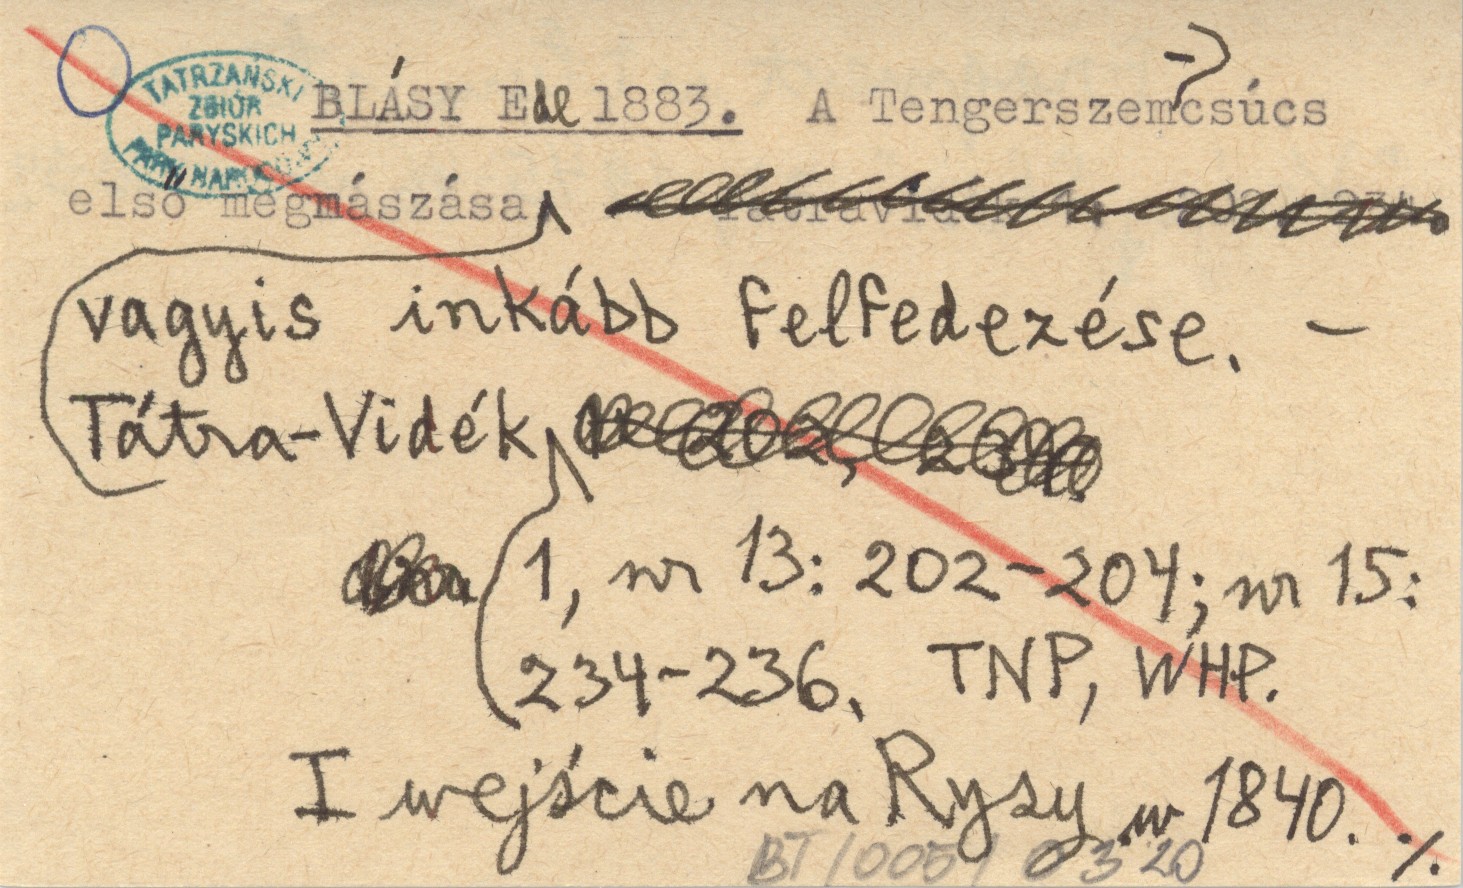 TATRZAŃSKI
ZBIÓR
PARYSKICH
PARK NAROD
BLÁSY Ede 1883. A Tengerszem-csúcs
első megmászása
vagyis inkább felfedezése. –
Tátra-Vidék
1, nr 13: 202-204; nr 15:
234-236. TNP, WHP.
I wejście na Rysy w 1840. ./.
BT/005/ 0320